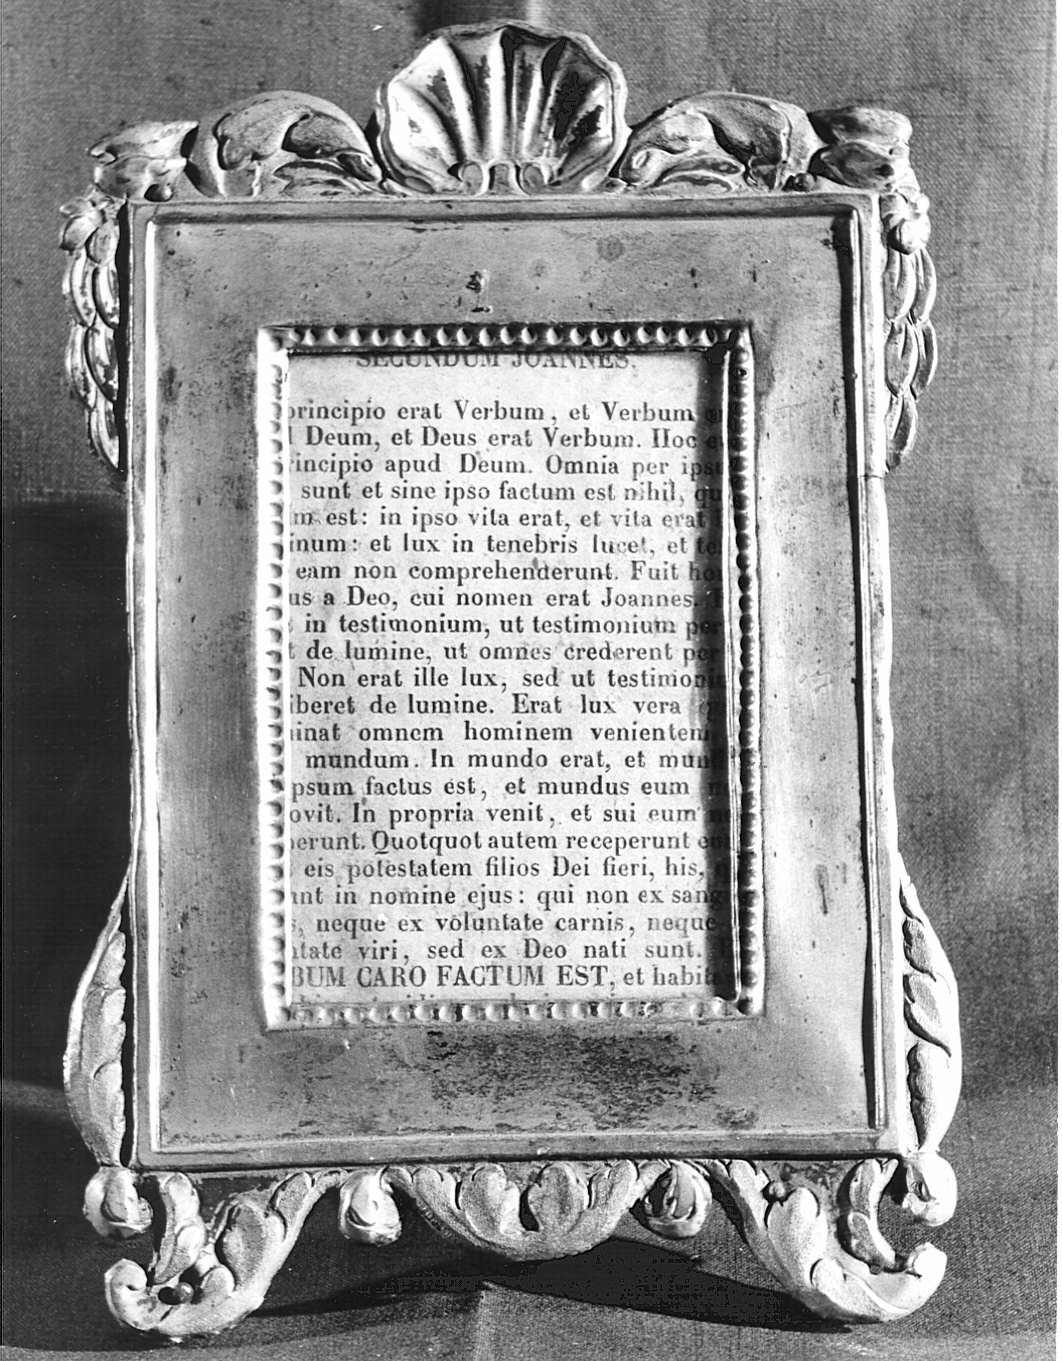 SECUNDUM JOANNES.
principio erat Verbum, et Verbum
Deum, et Deus erat Verbum. Hoc
incipio apud Deum. Omnia per ipsu
sunt et sine ipso factum est nihil, qu
m est: in ipso vita erat, et vita erat
inum: et lux in tenebris lucet, et te
eam non comprehenderunt. Fuit ho
us a Deo, cui nomen erat Joannes.
in testimonium, ut testimonium per
t de lumine, ut omnes crederent per
Non erat ille lux, sed ut testimoni
iberet de lumine. Erat lux vera
inat omnem hominem venientem
mundum. In mundo erat, et mun
psum factus est, et mundus eum
ovit. In propria venit, et sui eum
erunt. Quotquot autem receperunt
eis potestatem filios Dei fieri, his, q
unt in nomine ejus: qui non ex sang
s, neque ex voluntate carnis, neque
ntate viri, sed ex Deo nati sunt.
BUM CARO FACTUM EST, et habita